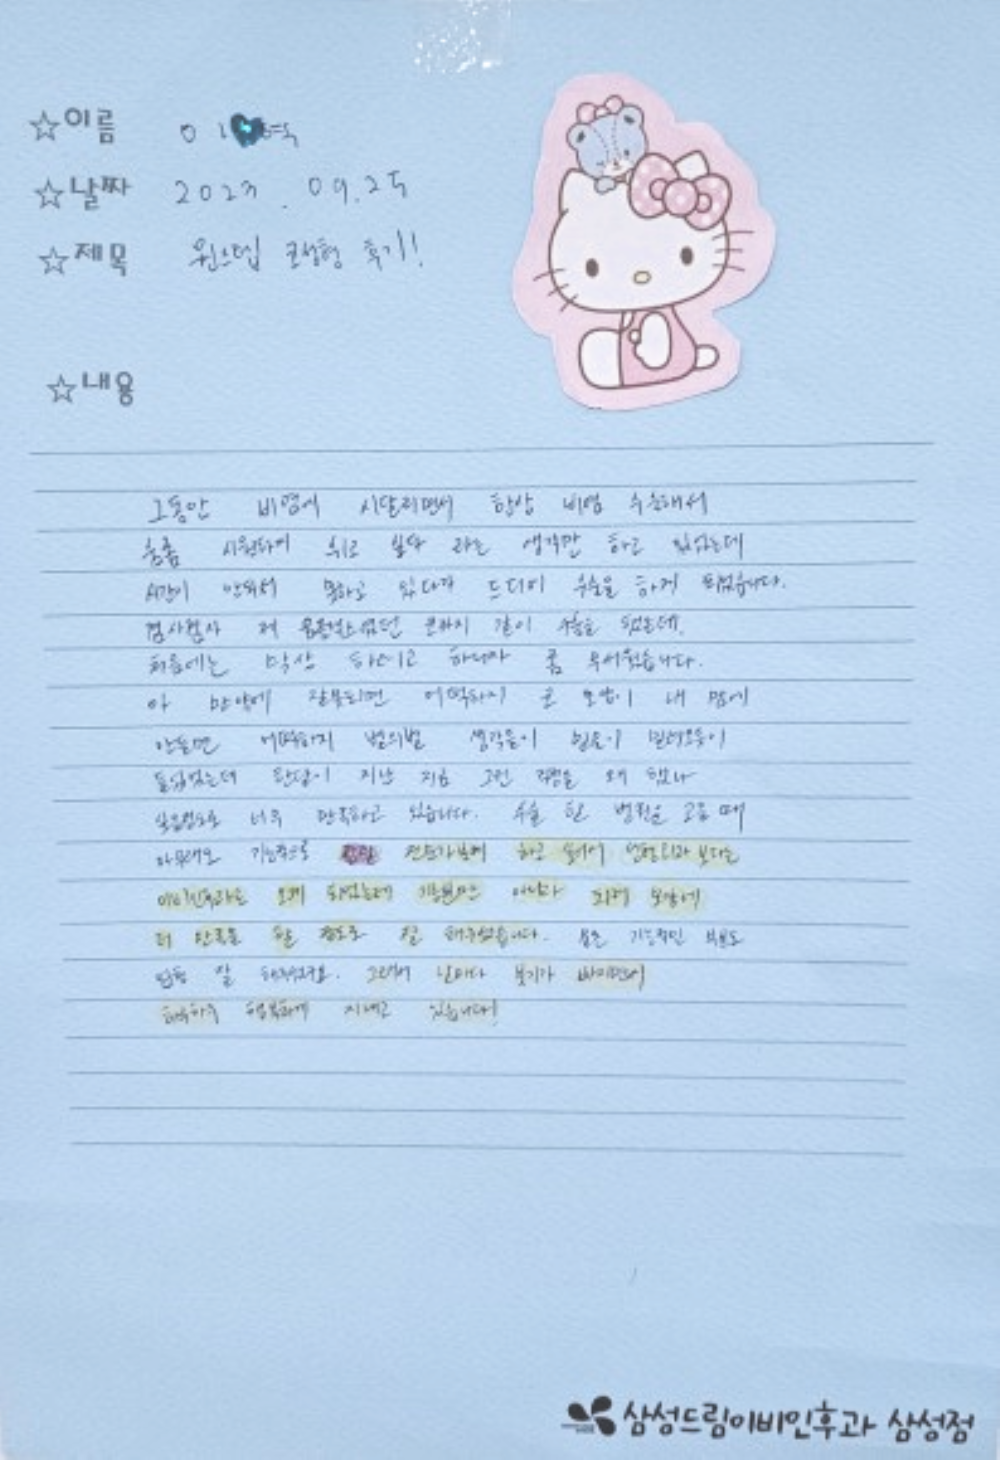 ☆이름 이
☆날짜 2023.09.25
☆제목 원스텝 코성형 후기!
☆내용
그동안 비염에 시달리면서 한방 비염 수술해서
숨좀 시원하게 쉬고 싶다 라는 생각만 하고 있었는데
시간이 안돼서 못하고 있다가 드디어 수술을 하게 되었습니다.
겸사겸사 저 코까지 같이 수술을 했는데,
처음에는 막상 하려고 하니까 좀 무서웠습니다.
아 만약에 잘못되면 어떡하지 코 모양이 내 맘에
안들면 어떡하지 별의별 생각들이 물밀듯이
들었었는데 한달이 지난 지금 그런 걱정을 왜 했나
싶을정도로 너무 만족하고 있습니다. 수술 할 병원을 고를 때
아무래도 기능적으로 전문가분께 하고 싶어서 성형외과 보다는
이비인후과로 오게 되었는데 기능뿐만 아니라 외적 모양에
더 만족을 할 정도로 잘 해주셨습니다. 기능적인 부분도
엄청 잘 해주셨구요. 그래서 날마다 붓기가 빠지면서
행복하게 지내고 있습니다!
삼성드림이비인후과 삼성점